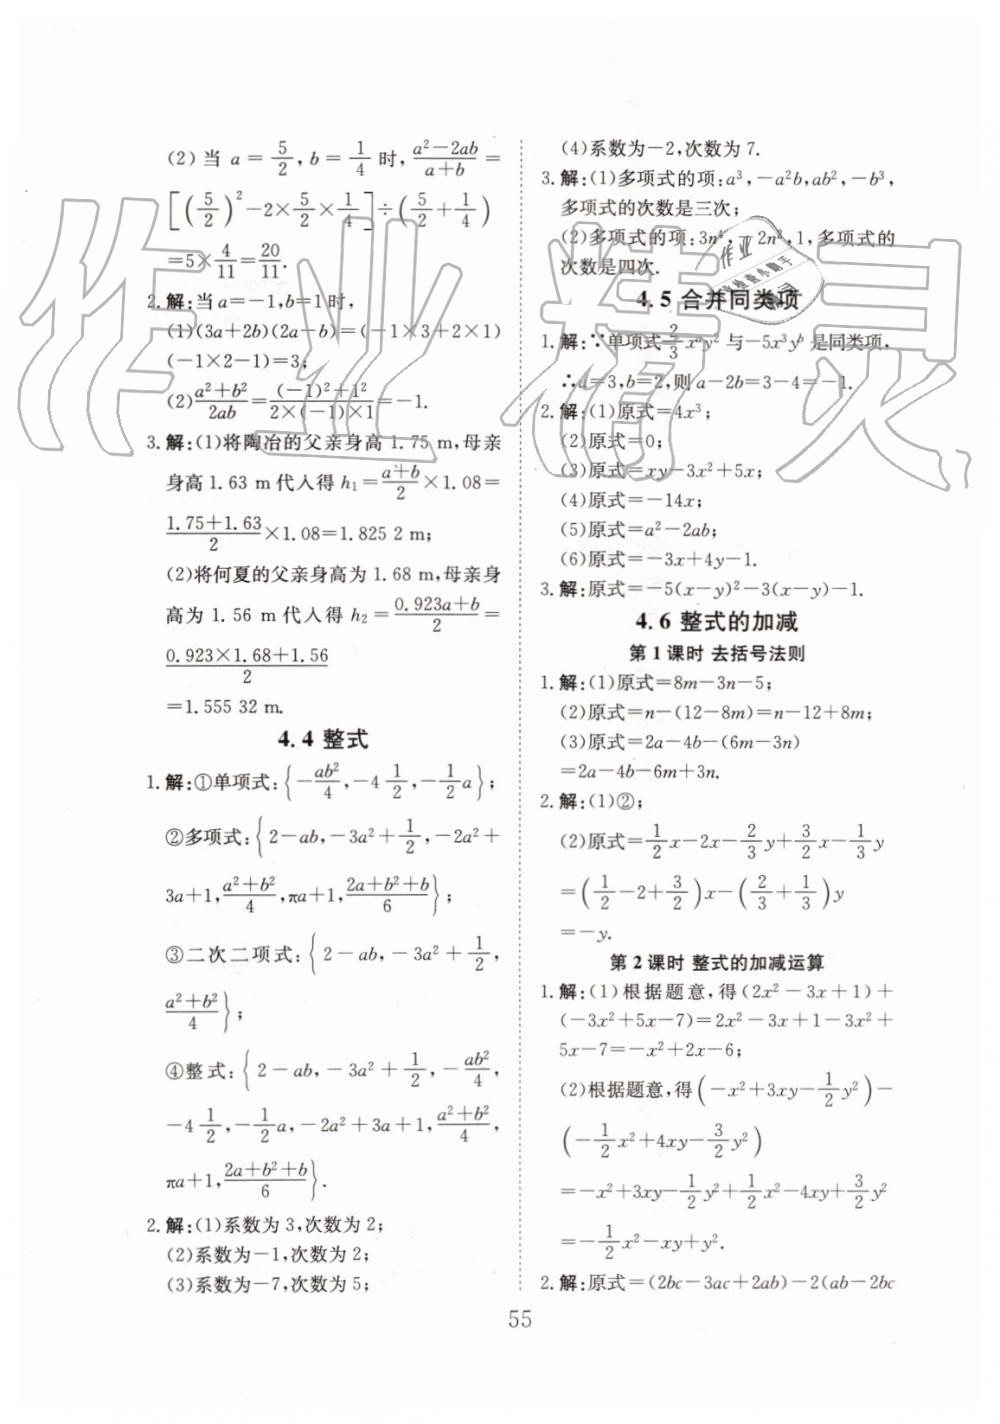 (2) 当 a=5/2,b=1/4 时,(a²-2ab)/(a+b)=
[(5/2)²-2×5/2×1/4]÷(5/2+1/4)
=5×4/11=20/11.
2.解:当a=-1,b=1时,
(1)(3a+2b)(2a-b)=(-1×3+2×1)
(-1×2-1)=3;
(2)(a²+b²)/2ab=((-1)²+1²)/(2×(-1)×1)=-1.
3.解:(1)将陶冶的父亲身高1.75 m,母亲
身高1.63 m代入得 h₁=(a+b)/2×1.08=
(1.75+1.63)/2×1.08=1.825 2 m;
(2)将何夏的父亲身高为1.68 m,母亲身
高为 1.56 m 代入得 h₂=(0.923a+b)/2=
(0.923×1.68+1.56)/2
=1.555 32 m.
4.4 整式
1.解:①单项式:{-ab²/4,-4 1/2,-1/2 a};
②多项式:{2-ab,-3a²+1/2,-2a²+
3a+1,(a²+b²)/4,πa+1,(2a+b²+b)/6};
③二次二项式:{2-ab,-3a²+1/2,
(a²+b²)/4};
④整式:{2-ab,-3a²+1/2,-ab²/4,
-4 1/2,-1/2 a,-2a²+3a+1,(a²+b²)/4,
πa+1,(2a+b²+b)/6}.
2.解:(1)系数为3,次数为2;
(2)系数为-1,次数为2;
(3)系数为-7,次数为5;
(4)系数为-2,次数为7.
3.解:(1)多项式的项:a³,-a²b,ab²,-b³,
多项式的次数是三次;
(2)多项式的项:3n⁴,-2n²,1,多项式的
次数是四次.
4.5 合并同类项
1.解:∵单项式2/3 xᵃy²与-5x³yᵇ是同类项,
∴a=3,b=2,则a-2b=3-4=-1.
2.解:(1)原式=4x³;
(2)原式=0;
(3)原式=xy-3x²+5x;
(4)原式=-14x;
(5)原式=a²-2ab;
(6)原式=-3x+4y-1.
3.解:原式=-5(x-y)²-3(x-y)-1.
4.6 整式的加减
第1课时 去括号法则
1.解:(1)原式=8m-3n-5;
(2)原式=n-(12-8m)=n-12+8m;
(3)原式=2a-4b-(6m-3n)
=2a-4b-6m+3n.
2.解:(1)②;
(2)原式=1/2 x-2x-2/3 y+3/2 x-1/3 y
=(1/2-2+3/2)x-(2/3+1/3)y
=-y.
第2课时 整式的加减运算
1.解:(1)根据题意,得(2x²-3x+1)+
(-3x²+5x-7)=2x²-3x+1-3x²+
5x-7=-x²+2x-6;
(2)根据题意,得(-x²+3xy-1/2 y²)-
(-1/2 x²+4xy-3/2 y²)
=-x²+3xy-1/2 y²+1/2 x²-4xy+3/2 y²
=-1/2 x²-xy+y².
2.解:原式=(2bc-3ac+2ab)-2(ab-2bc
55
作业精灵